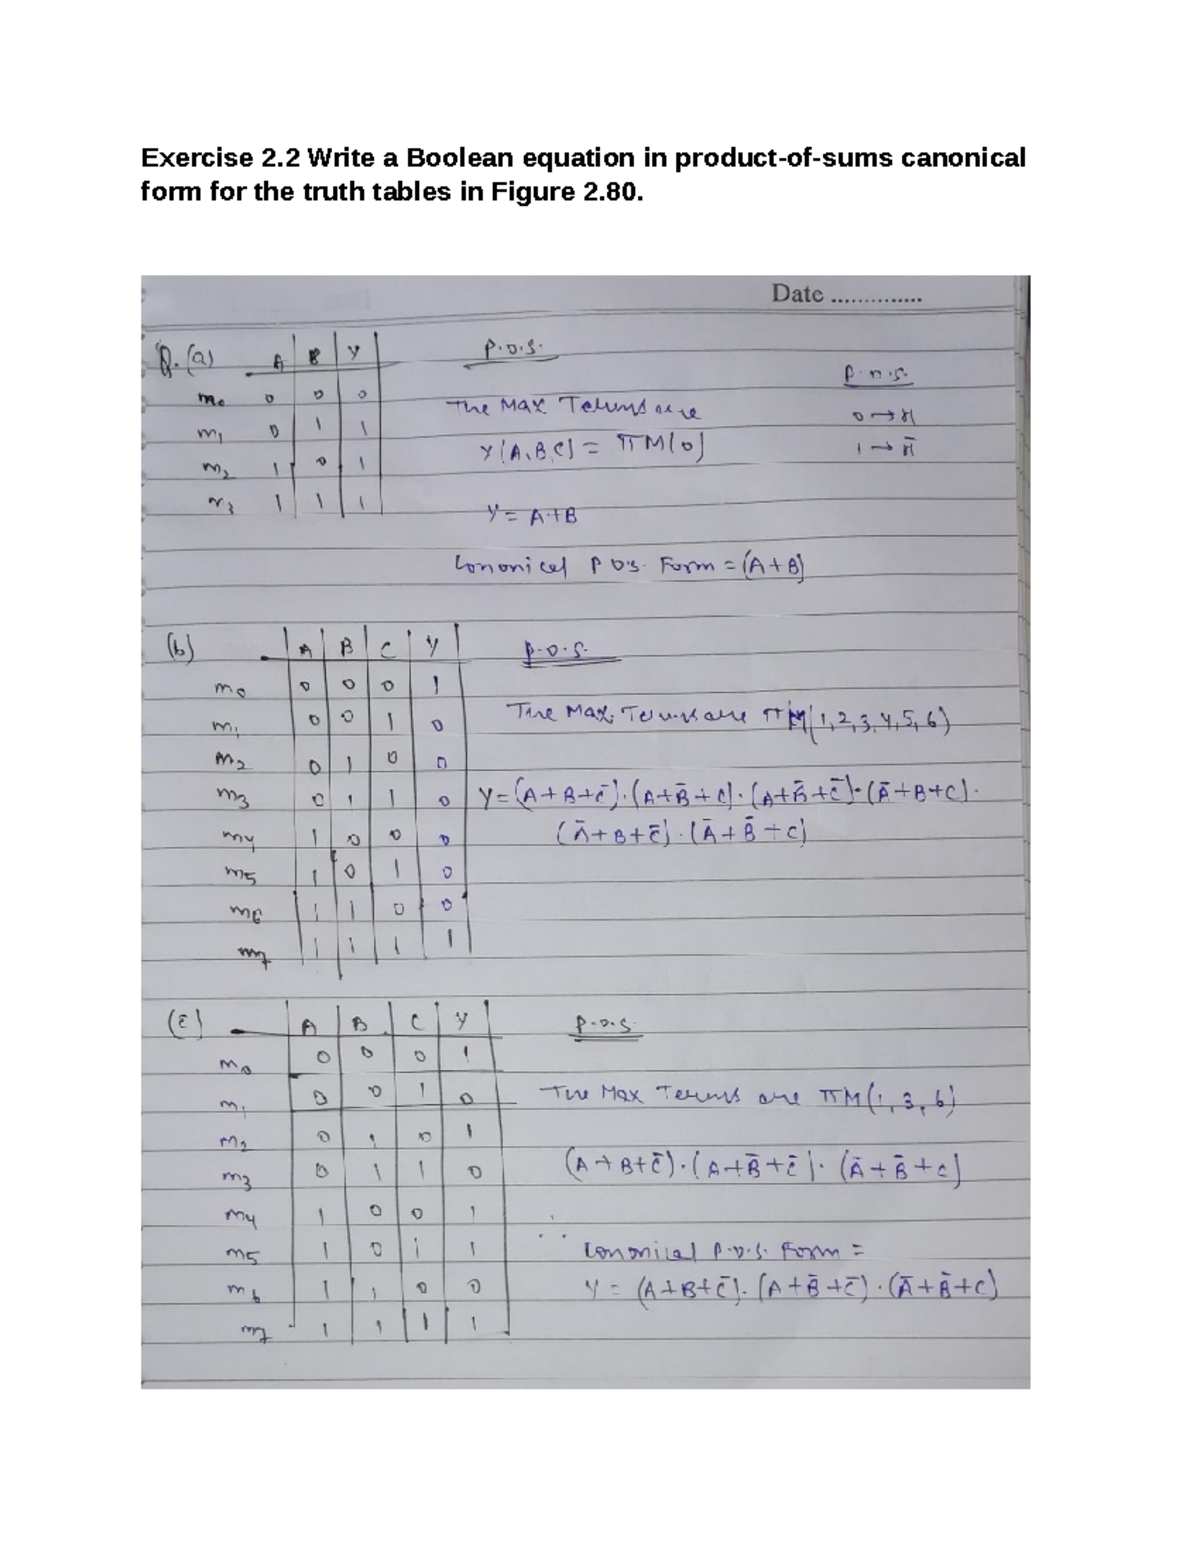 Exercise 2.2 Write a Boolean equation in product-of-sums canonical
form for the truth tables in Figure 2.80.
Date ..............
Q. (a) A B Y
m₀ 0 0 0
m₁ 0 1 1
m₂ 1 0 1
m₃ 1 1 1
P.O.S.
The Max Terms are
Y(A,B,C) = πM(0)
Y = A+B
Cononical P O.S. Form = (A+B)
0 →
1 →
(b) A B C Y
m₀ 0 0 0 1
m₁ 0 0 1 0
m₂ 0 1 0 0
m₃ 0 1 1 0
m₄ 1 0 0 0
m₅ 1 0 1 0
m₆ 1 1 0 0
m₇ 1 1 1 1
P.O.S.
The Max. Terms are πM(1,2,3,4,5,6)
Y = (A+B+C̄)·(A+B̄+C)·(A+B̄+C̄)·(Ā+B+C)·
(Ā+B+C̄)·(Ā+B̄+C)
(c) A B C Y
m₀ 0 0 0 1
m₁ 0 0 1 0
m₂ 0 1 0 1
m₃ 0 1 1 0
m₄ 1 0 0 1
m₅ 1 0 1 1
m₆ 1 1 0 0
m₇ 1 1 1 1
P.O.S.
The Max Terms are πM(1,3,6)
(A+B+C̄)·(A+B̄+C̄)·(Ā+B̄+C)
∴ Cononical P.O.S. Form =
Y = (A+B+C̄)·(A+B̄+C̄)·(Ā+B̄+C)